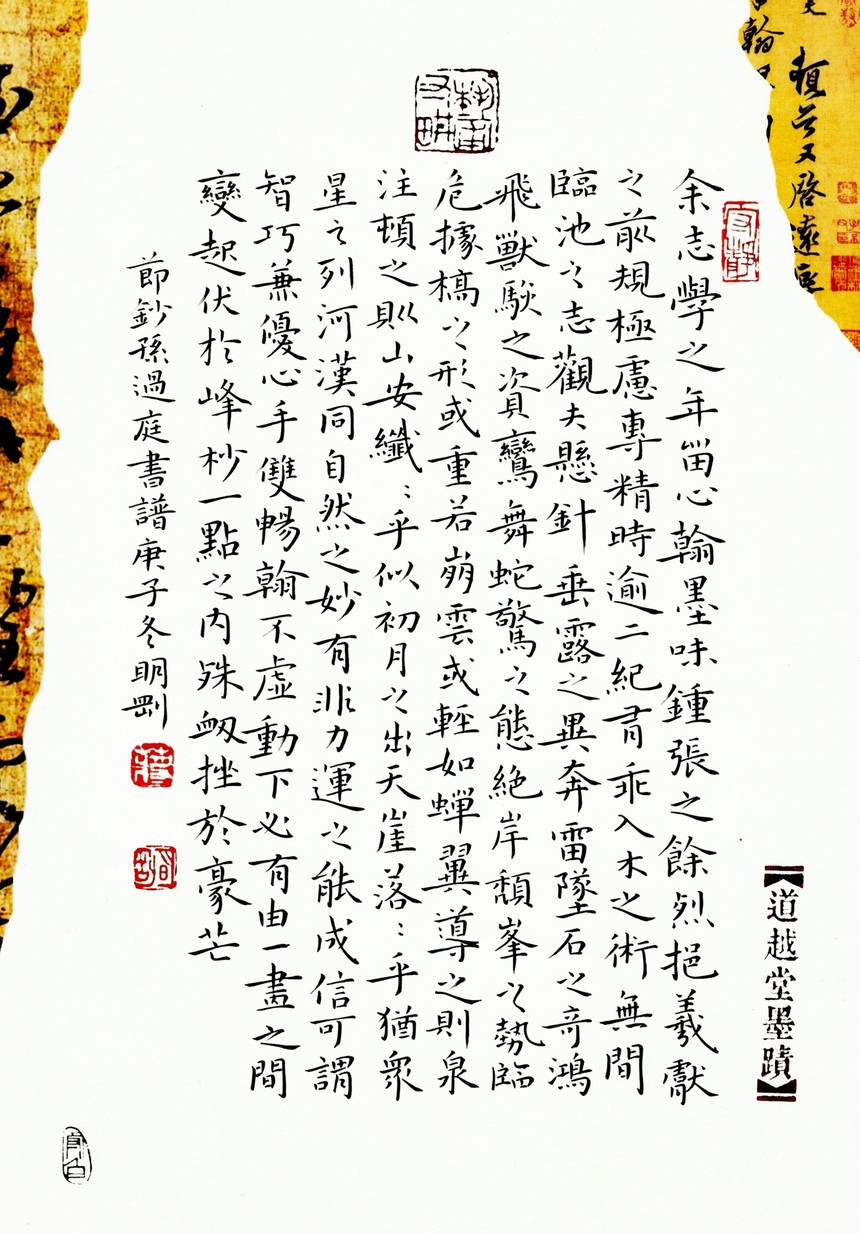 【道越堂墨蹟】
余志學之年畱心翰墨味鍾張之餘烈挹羲獻
之歬規極慮專精時逾二紀有乖入木之術無間
臨池之志觀夫懸針垂露之異奔雷墜石之奇鴻
飛獸駭之資鸞舞蛇驚之態絶岸頽峯之勢臨
危據槁之形或重若崩雲或輕如蟬翼導之則泉
注頓之則山安纖〻乎似初月之出天崖落〻乎猶衆
星之列河漢同自然之妙有非力運之能成信可謂
智巧兼優心手雙暢翰不虛動下必有由一畫之間
變起伏於峰杪一點之内殊衂挫於豪芒
節鈔孫過庭書譜庚子冬明剛